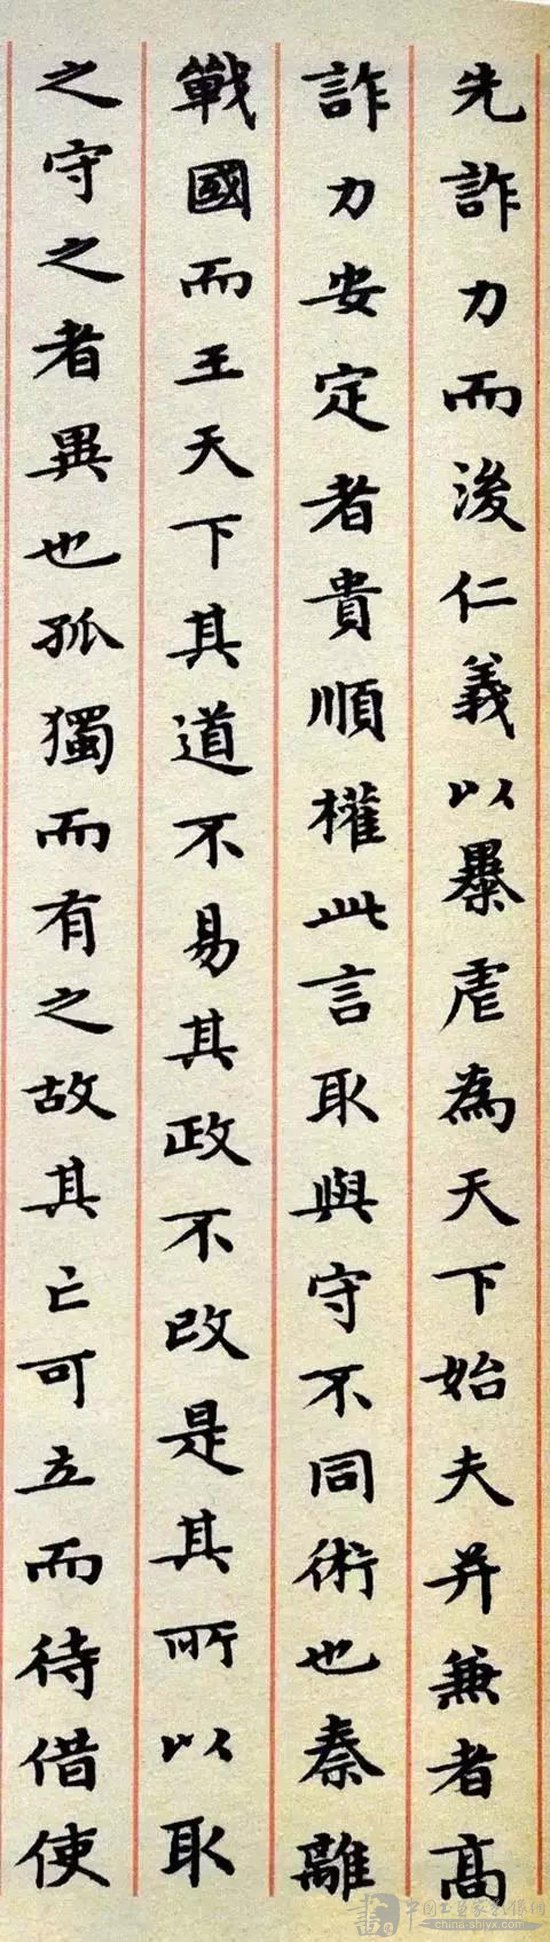 先詐力而後仁義以暴虐為天下始夫并兼者高
詐力安定者貴順權此言取與守不同術也秦離
戰國而王天下其道不易其政不改是其所以取
之守之者異也孤獨而有之故其亡可立而待借使
中国工笔画家影像網
china-shjyx.com